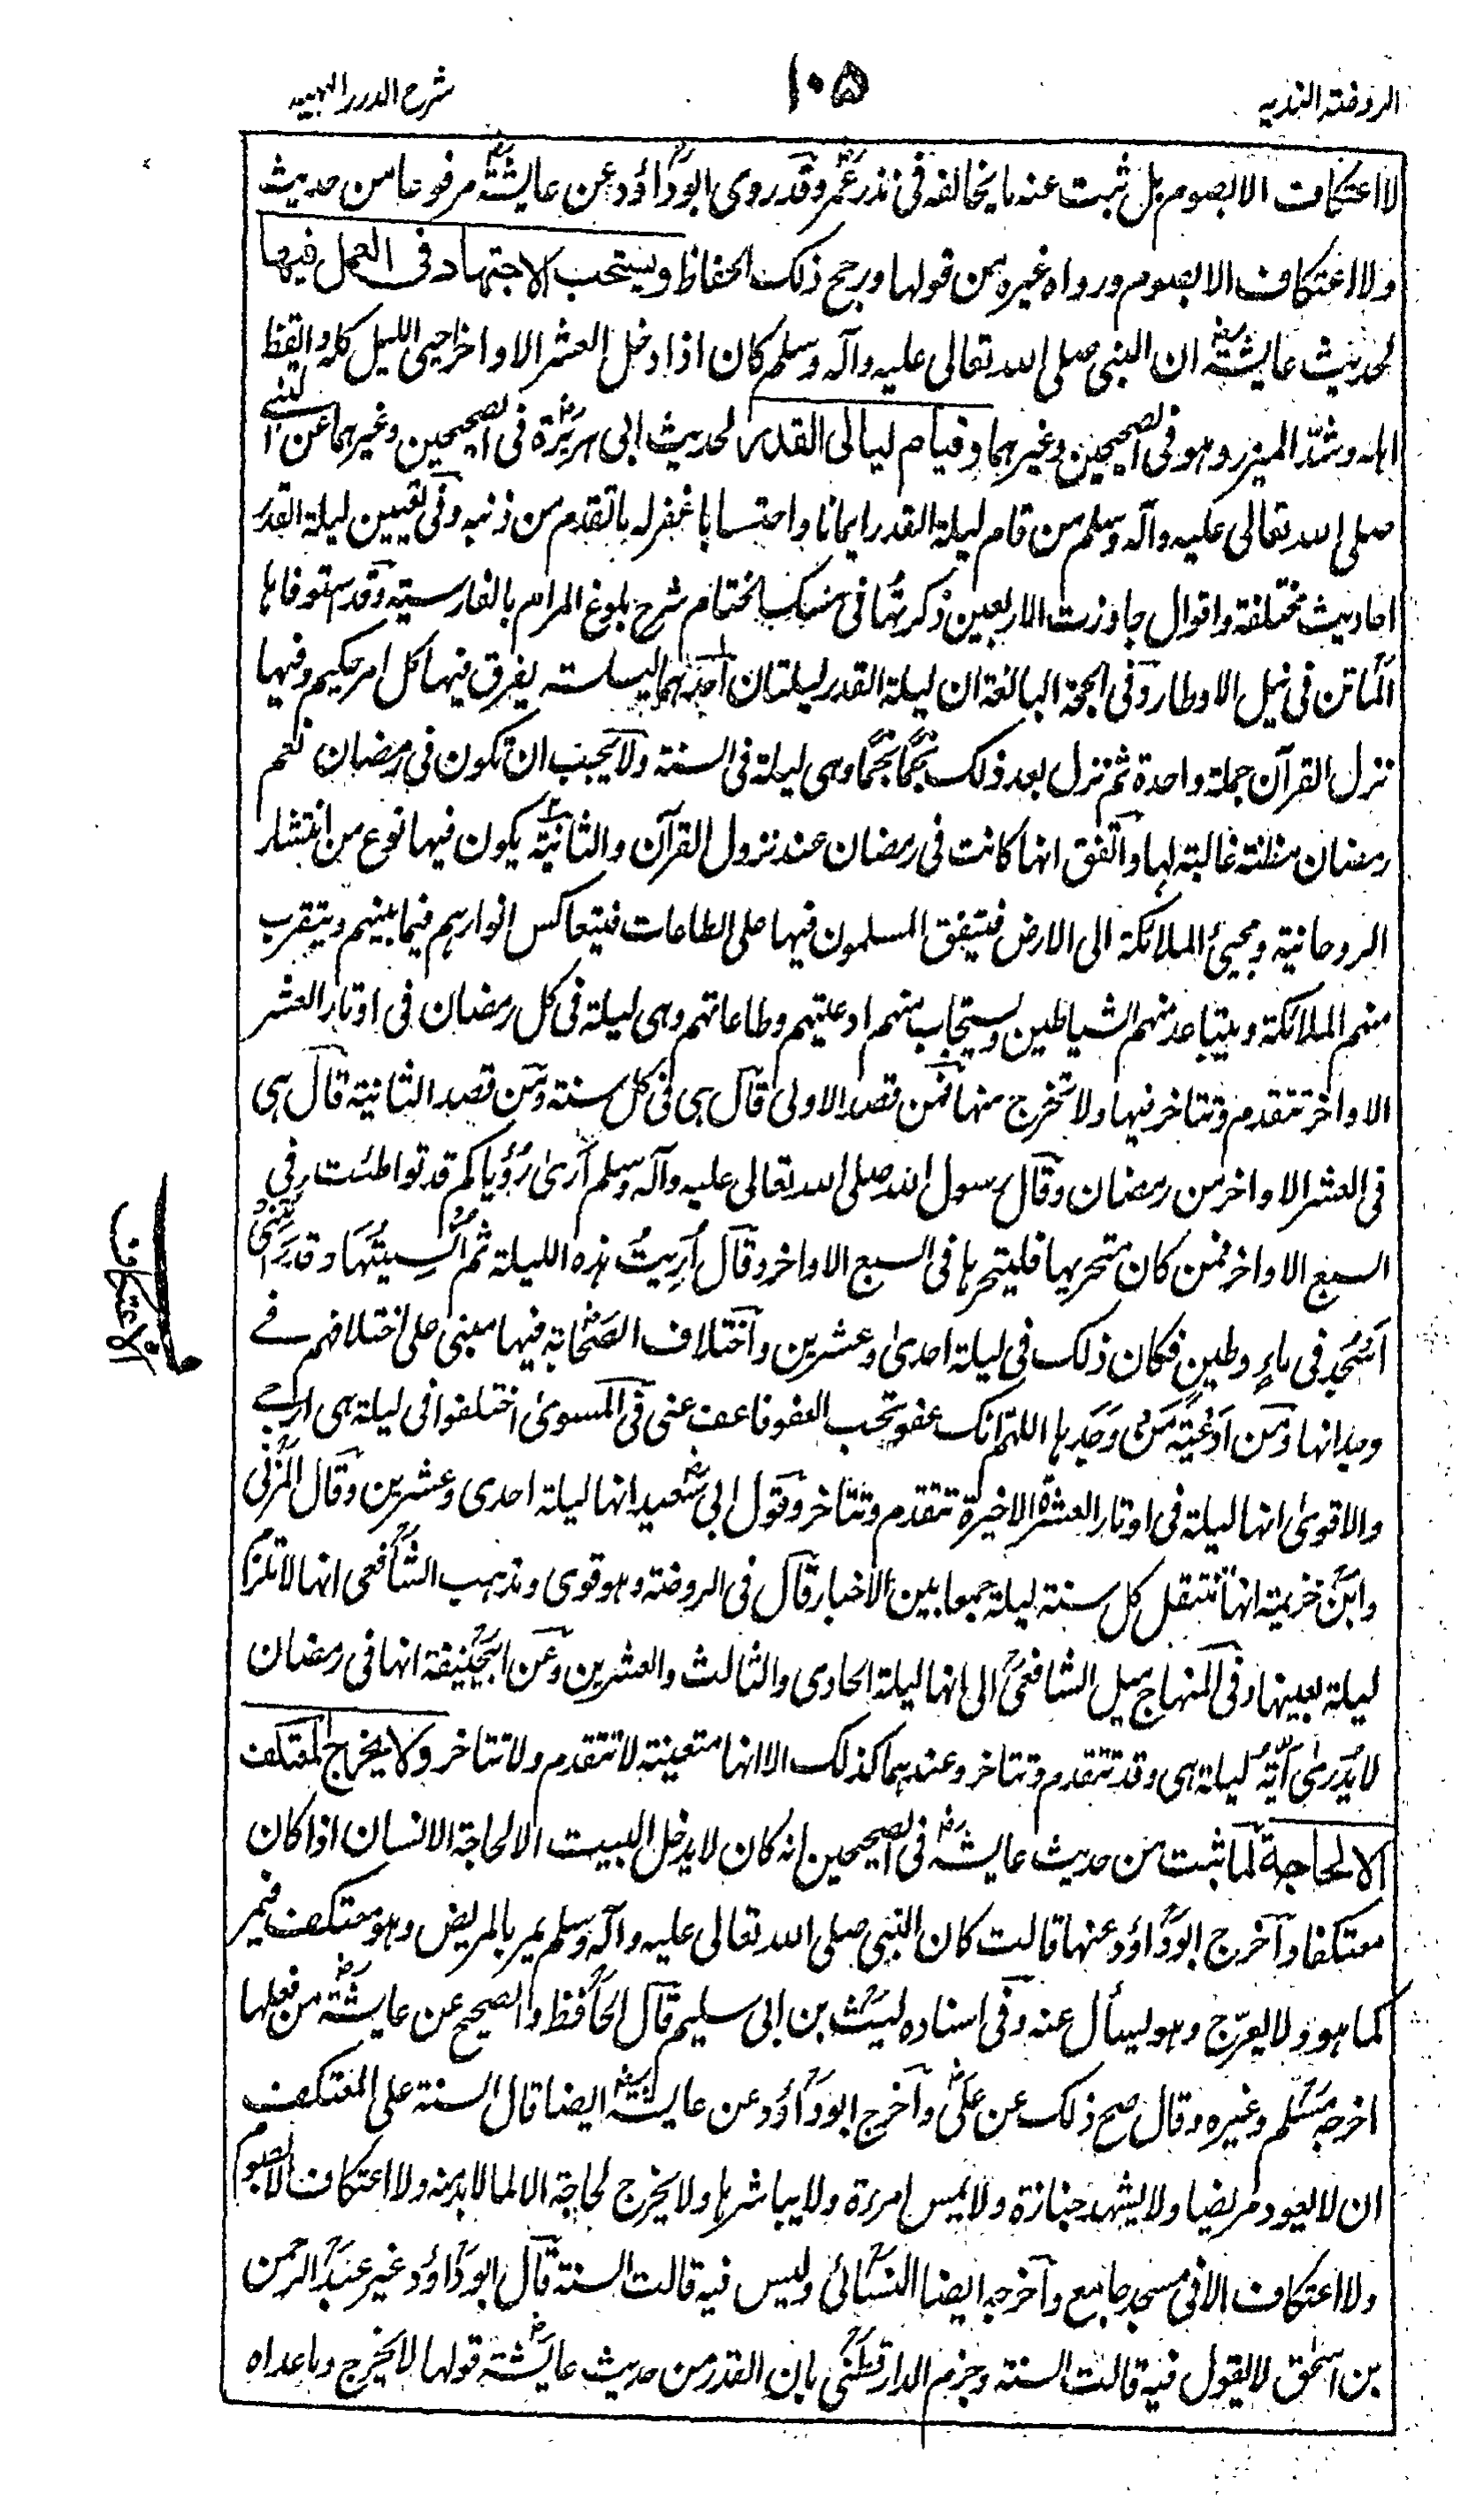 الروضة الندية
١٠٥
شرح الدرر البهية
لا اعتكاف الا بصوم بل ثبت عنه ما يخالفه فى نذر عمر وقد روى ابو داؤد عن عايشة مرفوعا من حديث
ولا اعتكاف الا بصوم ورواه غيره من قولها ورجح ذلك الحفاظ ويستحب الاجتهاد فى العمل فيها
لحديث عايشة ان النبى صلى الله تعالى عليه وآله وسلم كان اذا دخل العشر الاواخر احيى الليل كله وايقظ
اهله وشد الميزر وهو فى الصحيحين وغيرهما وقيام ليالى القدر لحديث ابى هريرة فى الصحيحين وغيرهما عن النبى
صلى الله تعالى عليه وآله وسلم من قام ليلة القدر ايمانا واحتسابا غفر له ما تقدم من ذنبه وفى تعيين ليلة القدر
احاديث مختلفة واقوال جاوزت الاربعين ذكرتها فى مسك الختام شرح بلوغ المرام بالفارسية وقد استوفاها
الماتن فى نيل الاوطار وفى الحجة البالغة ان ليلة القدر ليلتان احدهما ليلة يفرق فيها كل امر حكيم وفيها
نزل القرآن جملة واحدة ثم نزل بعد ذلك نجما نجما وهى ليلة فى السنة ولا يجب ان تكون فى رمضان نعم
رمضان مظنة غالبة لها واتفق انها كانت فى رمضان عند نزول القرآن والثانية يكون فيها نوع من انتشار
الروحانية ومجيئ الملائكة الى الارض فيتفق المسلمون فيها على الطاعات فيتعاكس انوارهم فيما بينهم ويتقرب
منهم الملائكة ويتباعد منهم الشياطين ويستجاب منهم ادعيتهم وطاعاتهم وهى ليلة فى كل رمضان فى اوتار العشر
الاواخر تتقدم وتتاخر فيها ولا تخرج منها فمن قصد الاولى قال هى فى كل سنة ومن قصد الثانية قال هى
فى العشر الاواخر من رمضان وقال رسول الله صلى الله تعالى عليه وآله وسلم ارى رؤياكم قد تواطئت فى
السبع الاواخر فمن كان متحريها فليتحرها فى السبع الاواخر وقال اريت هذه الليلة ثم انسيتها وقد رايتنى
اسجد فى ماء وطين فكان ذلك فى ليلة احدى وعشرين واختلاف الصحابة فيها مبنى على اختلافهم فے
وجدانها ومن ادعية من وجدها اللهم انك عفو تحب العفو فاعف عنى فى المسوى اختلفوا فى ليلة هى ارجے
والاقوى انها ليلة فى اوتار العشرة الاخيرة تتقدم وتتاخر وقول ابى سعيد انها ليلة احدى وعشرين وقال المزنى
وابن خزيمة انها تنتقل كل سنة ليلة جمعا بين الاخبار قال فى الروضة وهو قوى ومذهب الشافعى انها لا تلزم
ليلة بعينها وفى المنهاج ميل الشافعى الى انها ليلة الحادى والثالث والعشرين وعن ابيحنيفة انها فى رمضان
لا يدرى اية ليلة هى وقد تتقدم وتتاخر وعندهما كذلك الا انها متعينة لا تتقدم ولا تتاخر ولا يخرج المعتكف
الا لحاجة لما ثبت من حديث عايشة فى الصحيحين انه كان لا يدخل البيت الا لحاجة الانسان اذا كان
معتكفا واخرج ابو داؤد عنها قالت كان النبى صلى الله تعالى عليه وآله وسلم يمر بالمريض وهو معتكف فيمر
كما هو ولا يعرج وهو يسأل عنه وفى اسناده ليث بن ابى سليم قال الحافظ والصحيح عن عايشة من فعلها
اخرجه مسلم وغيره وقال صح ذلك عن على واخرج ابو داؤد عن عايشة ايضا قال السنة على المعتكف
ان لا يعود مريضا ولا يشهد جنازة ولا يمس امرءة ولا يباشرها ولا يخرج لحاجة الا لما لا بد منه ولا اعتكاف الا بصوم
ولا اعتكاف الا فى مسجد جامع واخرجه ايضا النسائى وليس فيه قالت السنة قال ابو داؤد غير عبد الرحمن
بن اسحق لا يقول فيه قالت السنة وجزم الدارقطنى بان القدر من حديث عايشة قولها لا يخرج وما عداه
الاعتكاف